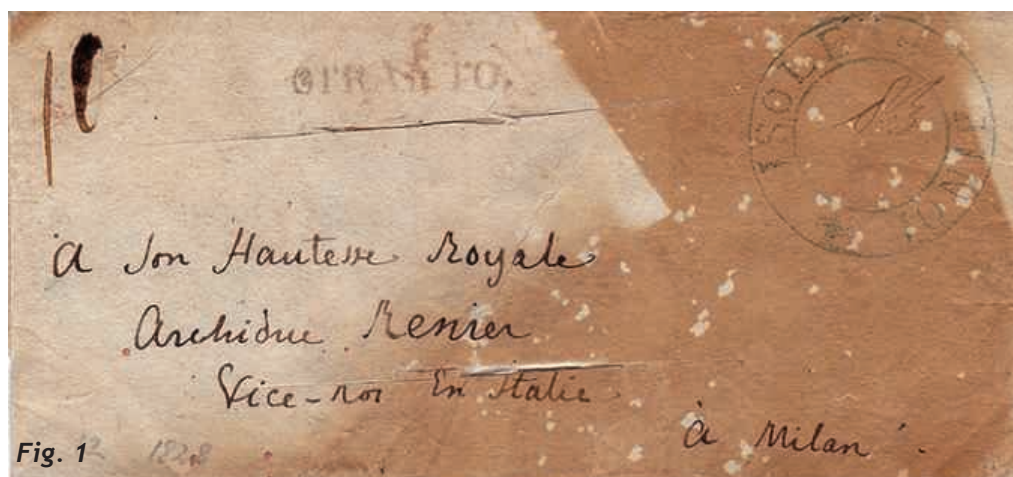 OTRANTO.
ISOLE
IONIE
A Son Hautesse Royale
Archiduc Renier
Vice-roi En Italie
à Milan.
Fig. 1
1828